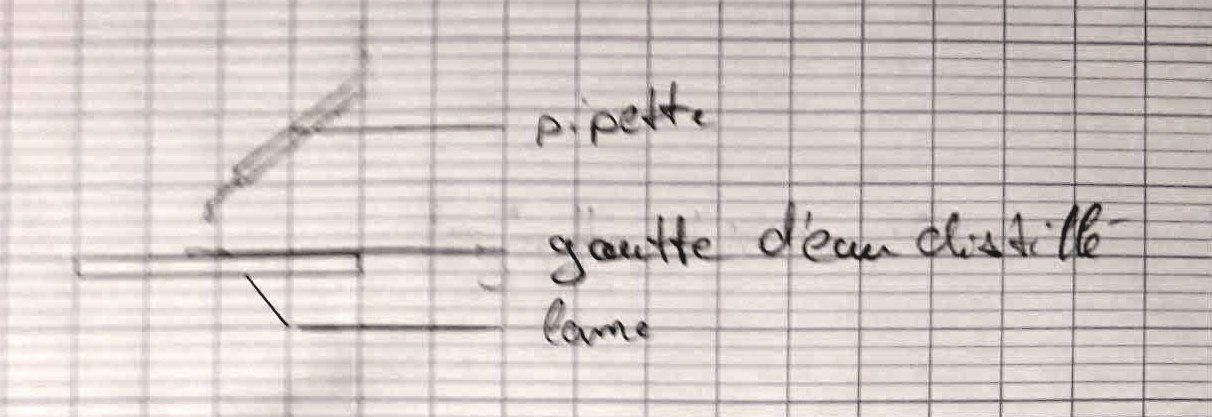 pipette
goutte d'eau distillé
lame